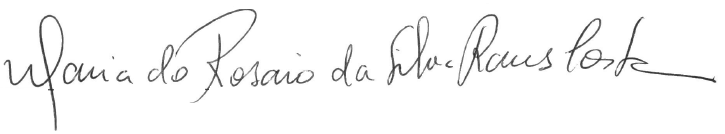 Maria do Rosario da Silva Ramos Costa